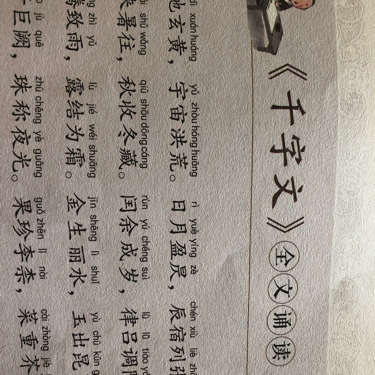 《千字文》全文诵读
dì xuán huáng yǔ zhòu hóng huāng rì yuè yíng zè chén xiù liè
地玄黄，宇宙洪荒。日月盈昃，辰宿列张
shǔ wǎng qiū shōu dōng cáng rùn yú chéng suì lǜ lǚ tiáo
来暑往，秋收冬藏。闰余成岁，律吕调
zhì yǔ lù jié wéi shuāng jīn shēng lì shuǐ yù chū kūn
腾致雨，露结为霜。金生丽水，玉出昆
jù què zhū chēng yè guāng guǒ zhēn lǐ nài cài zhòng jiè
巨阙，珠称夜光。果珍李柰，菜重芥